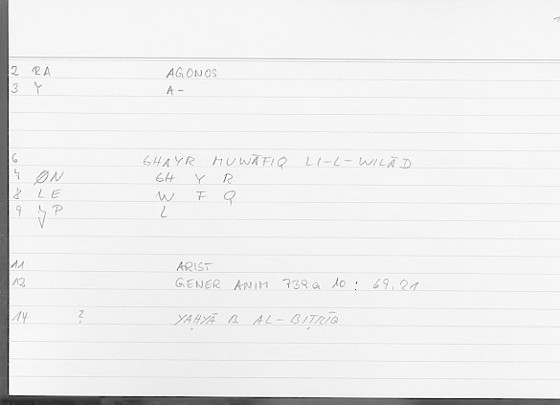 2 RA AGONOS
3 Y A-
6 GHAYR MUWĀFIQ LI-L-WILĀD
7 ØN GH Y R
8 LE W F Q
9 P L
11 ARIST
GENER ANIM 739a 10 : 69,21
14 ? YAḤYĀ B AL-BIṬRĪQ